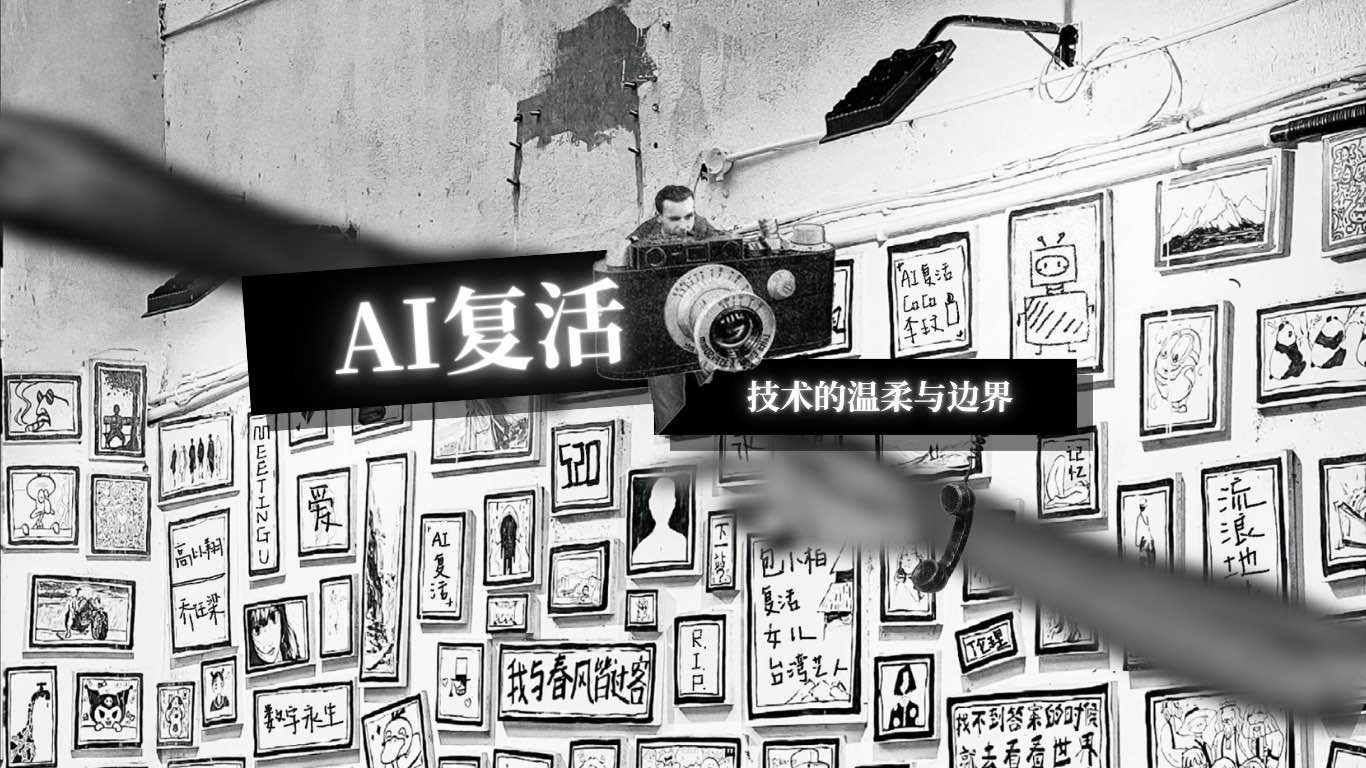 AI复活
技术的温柔与边界
AI复活
CoCo
李玟
MEETING U
爱
520
记忆
流浪地
高以翔
乔任梁
AI
复活
下一站
包小柏
复活
女儿
台湾艺人
R.I.P.
伦理
我与春风皆过客
数字永生
找不到答案的时候
就去看看世界